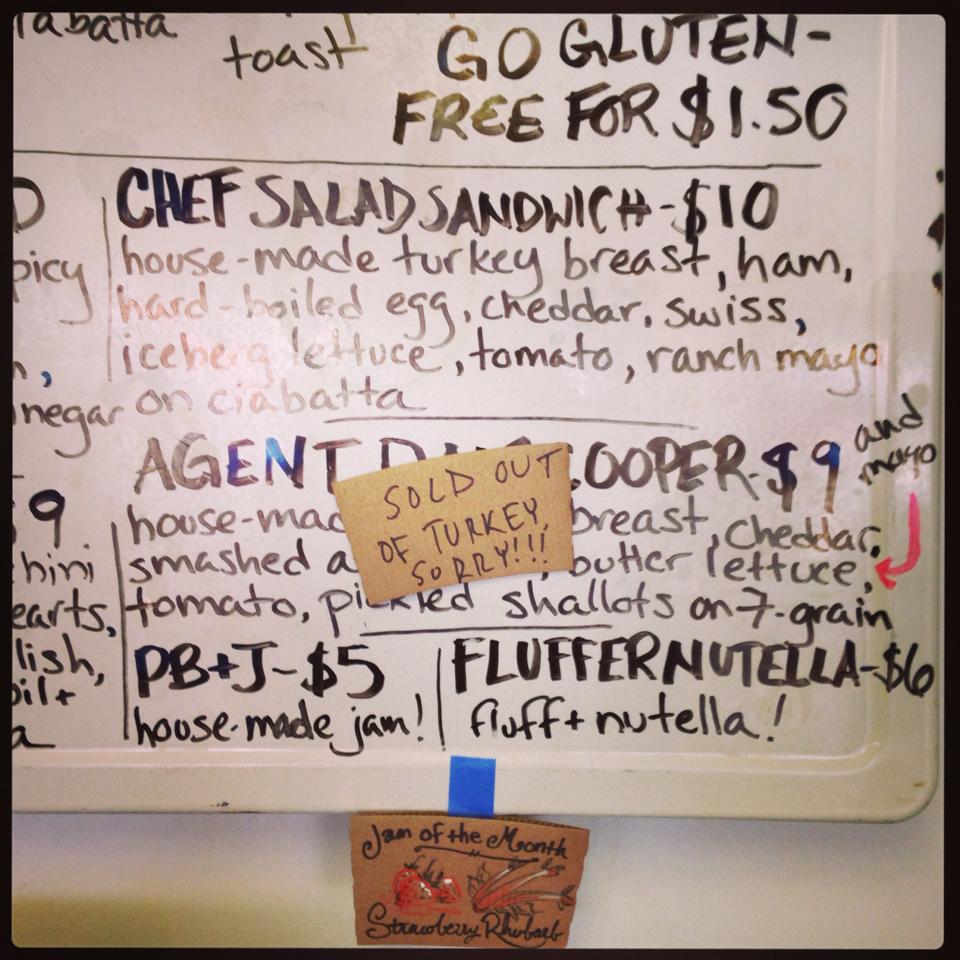 rabatta
toast
GO GLUTEN-
FREE FOR $1.50
CHEF SALAD SANDWICH-$10
house-made turkey breast, ham,
hard-boiled egg, cheddar, swiss,
iceberg lettuce, tomato, ranch mayo
on ciabatta
picy
inegar
9
hini
earts,
lish,
oil+
a
AGENT
OOPER-$9
and
mayo
house-mad
breast, cheddar,
smashed a
butter lettuce,
tomato, pickled shallots on 7-grain
SOLD OUT
OF TURKEY,
SORRY!!!
PB+J-$5
house-made jam!
FLUFFERNUTELLA-$6
fluff + nutella!
Jam of the Month
Strawberry Rhubarb